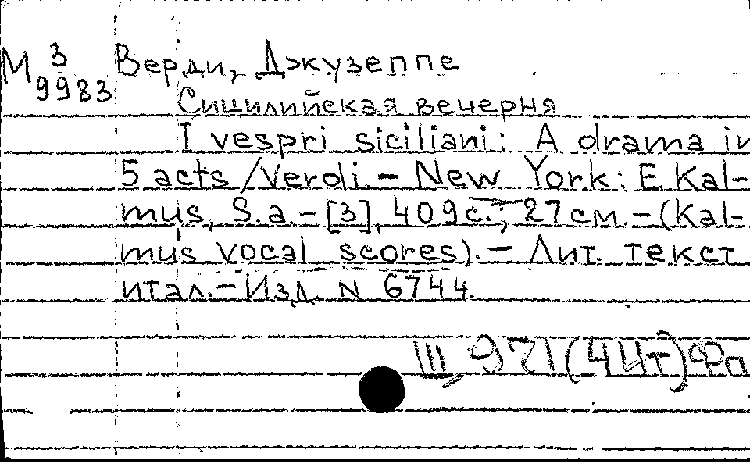 М 3 Верди, Джузеппе
9983
Сицилийская вечерня
I vespri siciliani: A drama in
5 acts / Verdi. – New York: E. Kal-
mus, S.a. – [3], 409 с.; 27 см. – (Kal-
mus vocal scores). – Лит. текст
итал. – Изд. N 6744.
III 971(4Ит)Фа